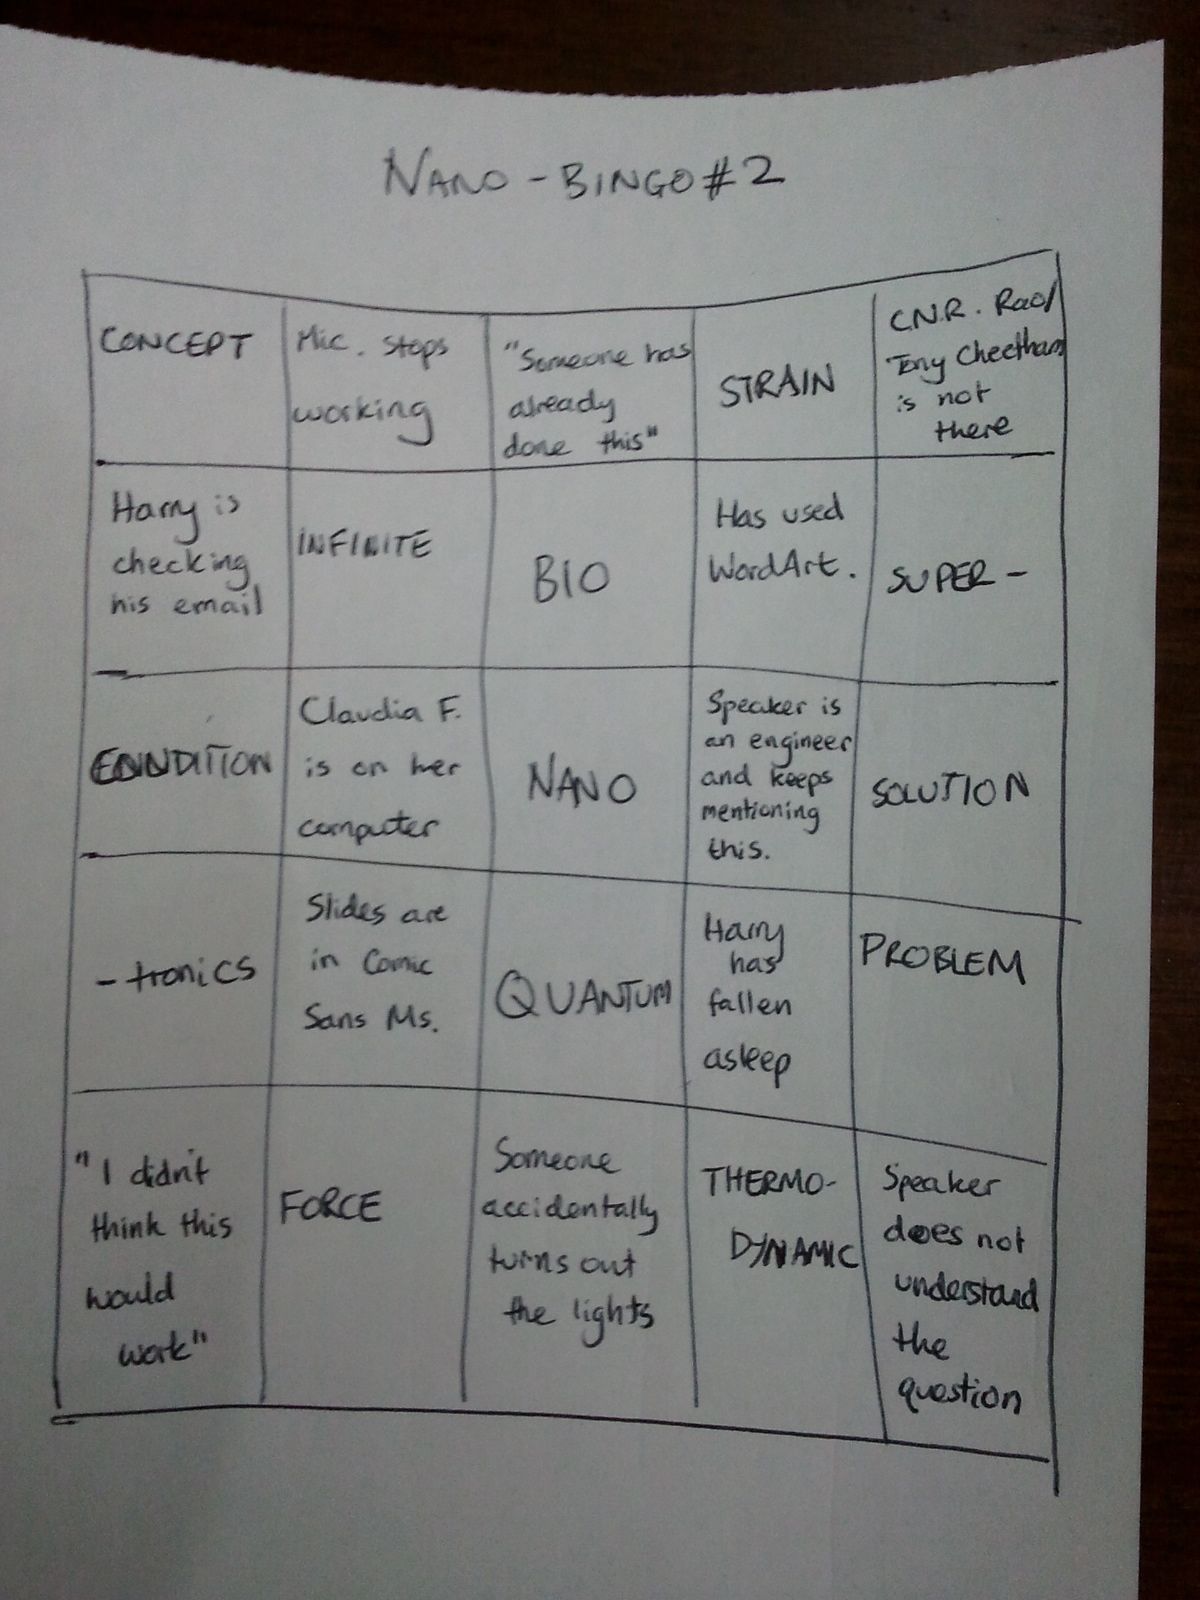 NANO-BINGO#2
CONCEPT
Mic. stops
working
"Someone has
already
done this"
STRAIN
C.N.R. Rao/
Tony Cheetham
is not
there
Harry is
checking
his email
INFINITE
BIO
Has used
WordArt.
SUPER-
CONDITION
Claudia F.
is on her
computer
NANO
Speaker is
an engineer
and keeps
mentioning
this.
SOLUTION
-tronics
Slides are
in Comic
Sans Ms.
QUANTUM
Harry
has
fallen
asleep
PROBLEM
"I didn't
think this
would
work"
FORCE
Someone
accidentally
turns out
the lights
THERMO-
DYNAMIC
Speaker
does not
understand
the
question